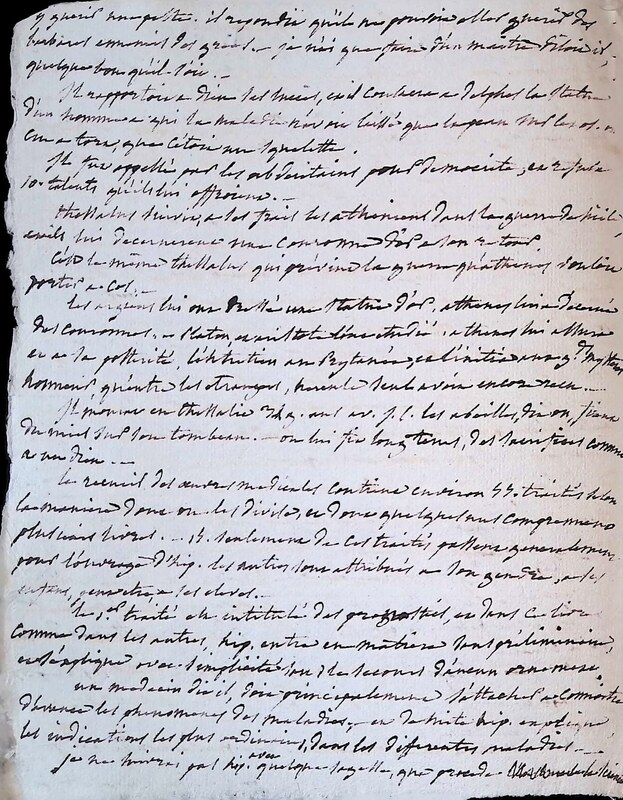 y guerir une peste. il repondit qu'il ne pouvoit aller guerir des
barbares ennemis des grecs. — je n'ai que faire d'un maitre disoit il,
quelque bon qu'il soit. —
Il rapportoit a dieu ses succès, et il consacra a delphes la statue
d'un homme a qui la maladie n'avoit laissé que la peau sur les os.
que c'étoit un squelette.
Il fut appellé par les abderitains pour democrite, et refusa
10. talents qu'ils lui offroient. —
thessalus suivit, a ses frais les atheniens dans la guerre de sicile,
et ils lui decernerent une couronne d'or a son retour.
C'est le même thessalus qui prévint la guerre qu'athenes vouloit
porter a cos. —
les argiens lui ont dressé une statue d'or, athenes lui a decerné
des couronnes, platon, et aristote l'ont etudié, athenes lui assura
et a sa postérité, l'entretien au Prytanée, et l'initia aux gds mystères
honneur qu'entre les etrangers, hercule seul avoit encore recu. —
Il mourut en thessalie ans av. J. C. les abeilles, dit on, firent
du miel sur son tombeau. — on lui fit longtems, des sacrifices comme
a un dieu. —
le recueil des œuvres medicales contient environ traités selon
la maniere dont on les divise, et dont quelques uns comprennent
plusieurs livres. — seulement de ces traités passent generalement
pour l'ouvrage d'hip. les autres sont attribués a son gendre, a ses
enfans, peut etre a ses eleves. —
le 1er traité est intitulé des prognostics, et dans ce livre
comme dans les autres, hip. entre en matiere sans préliminaire,
et s'explique avec simplicité sans le secours d'aucun ornement.
un medecin dit il, doit principalement s'attacher a connoitre
d'avance les phenomenes des maladies, — et de suite hip. explique
les indications les plus ordinaires, dans les differentes maladies. —
je ne suivrai pas hip. avec quelque sagesse, que procede